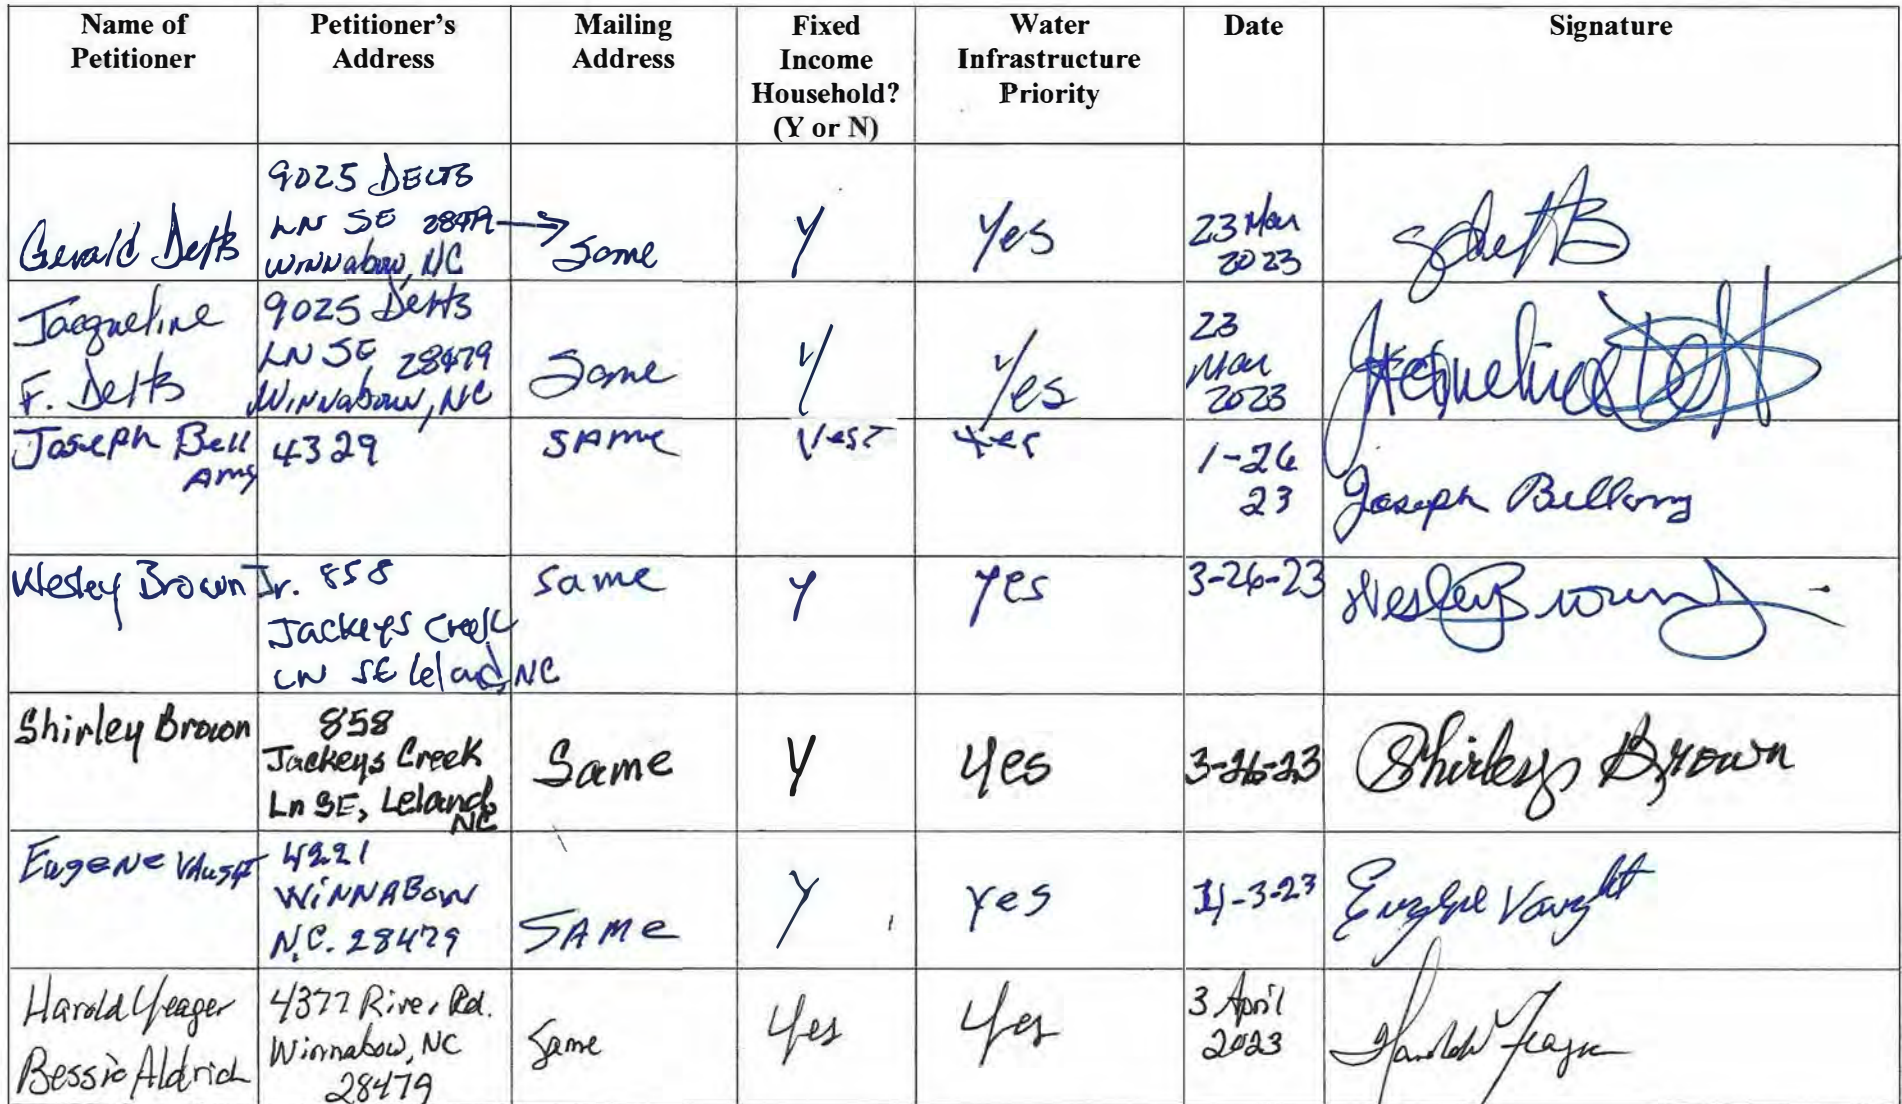 Name of Petitioner Petitioner's Address Mailing Address Fixed Income Household? (Y or N) Water Infrastructure Priority Date Signature
Gerald Detts
9025 Detts
LN SE 28479
Winnabow, NC
Same
Y
Yes
23 Mar
2023
Jacqueline
F. Detts
9025 Detts
LN SE 28479
Winnabow, NC
Same
Y
Yes
23
Mar
2023
Jacqueline Detts
Joseph Bell
Amy
4329
SAME
Yes
Yes
1-26
23
Joseph Bellamy
Wesley Brown Jr.
858
Jackeys Creek
LN SE Leland, NC
same
Y
yes
3-26-23
Wesley Brown Jr
Shirley Brown
858
Jackeys Creek
Ln SE, Leland,
NC
Same
Y
Yes
3-26-23
Shirley Brown
Eugene Vaught
4221
WINNABOW
N.C. 28479
SAME
Y
yes
4-3-23
Eugene Vaught
Harold Yeager
Bessie Aldrich
4377 River Rd.
Winnabow, NC
28479
Same
Yes
Yes
3 April
2023
Harold Yeager